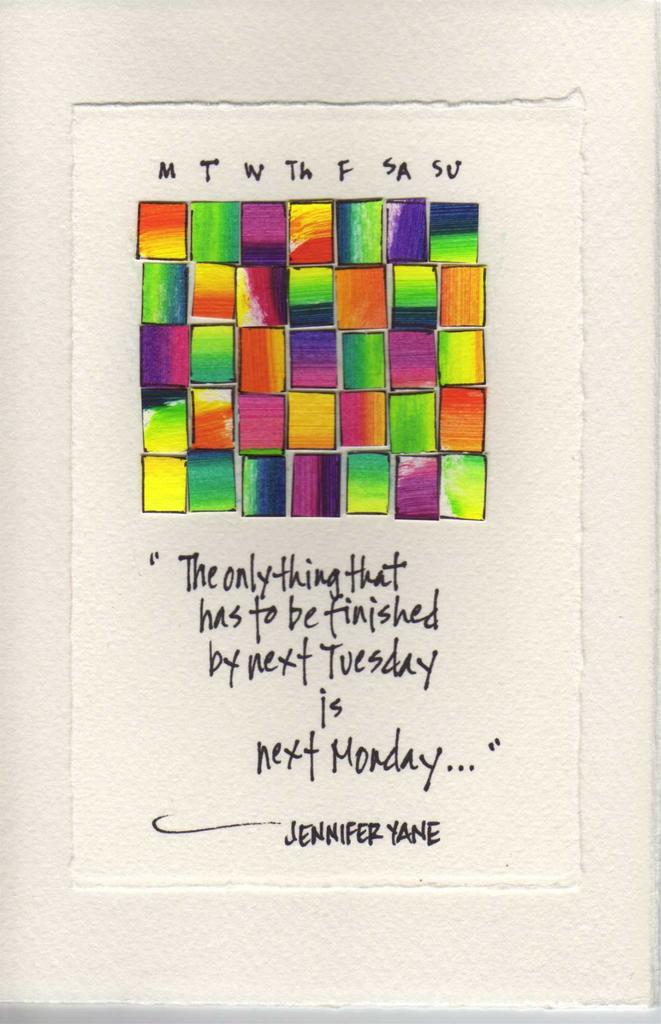 M T W Th F SA SU
"The only thing that
has to be finished
by next Tuesday
is
next Monday..."
JENNIFER YANE